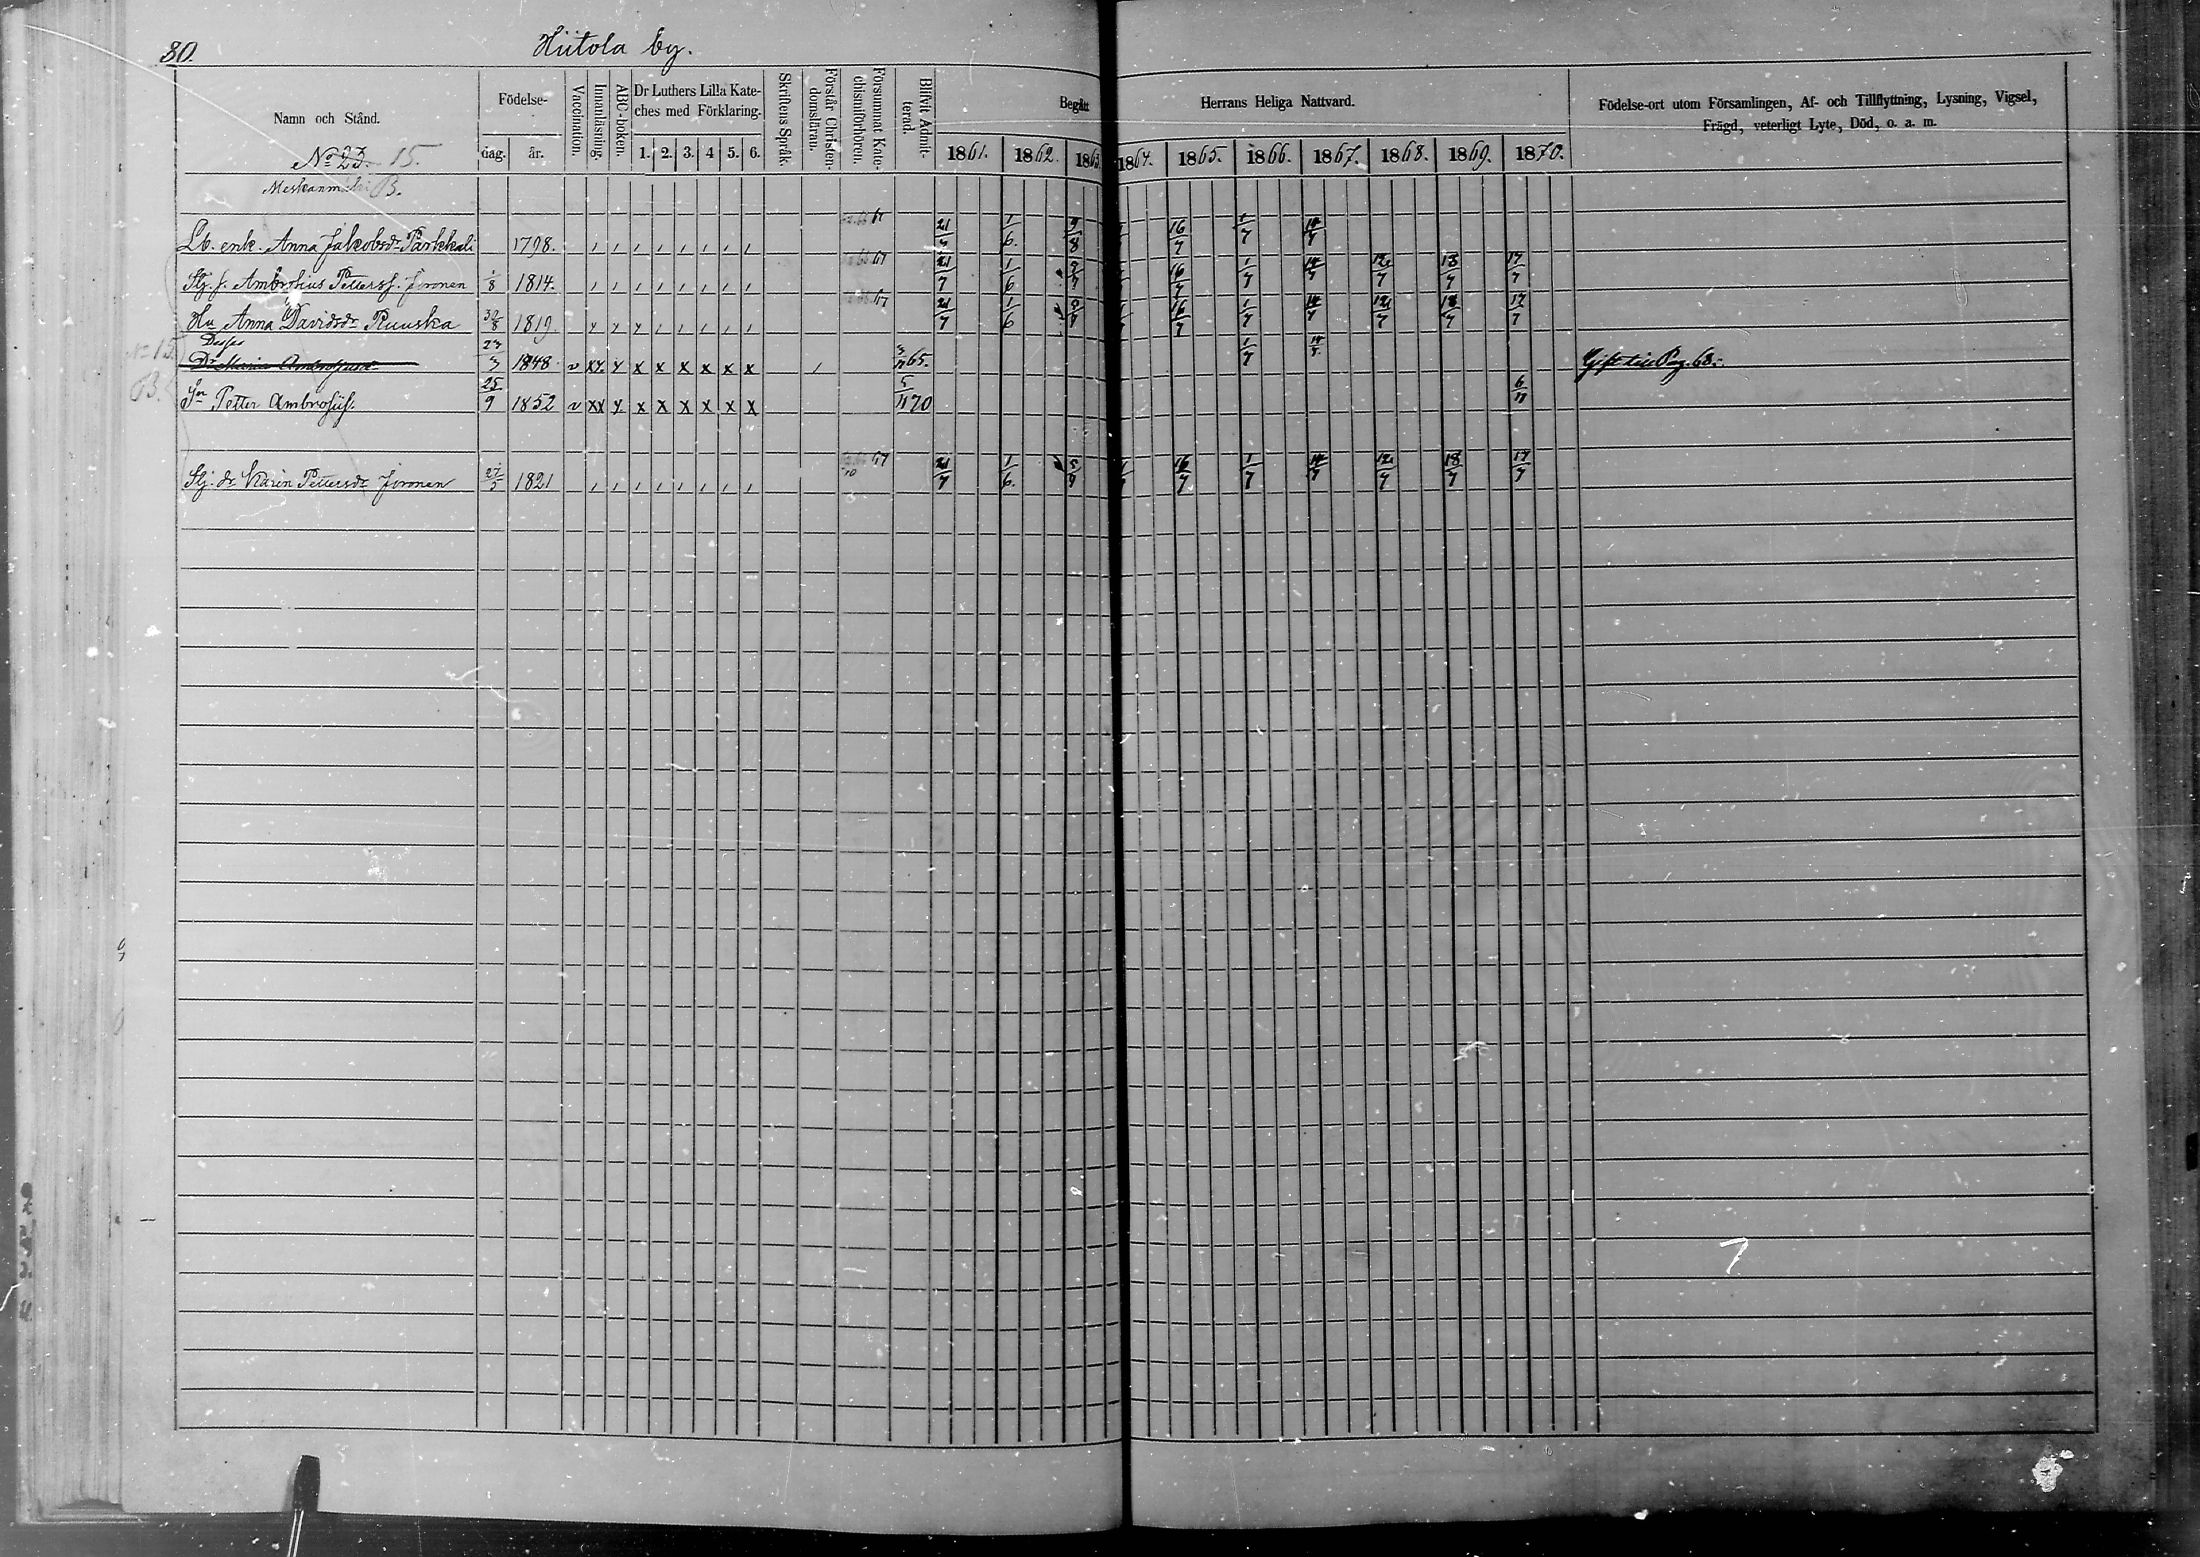 80.
Hiitola by.
Namn och Stånd.
Födelse-
dag.
år.
Vaccination.
Innanläsning.
ABC-boken.
Dr Luthers Lilla Kate-
ches med Förklaring.
1. 2. 3. 4 5. 6.
Skriftens Språk
Förstår Christen-
domsläran.
Försummat Kate-
chismiförhören.
Blifvit Admit-
terad.
Begått Herrans Heliga Nattvard.
1861. 1862. 1863. 1864. 1865. 1866. 1867. 1868. 1869. 1870.
Födelse-ort utom Församlingen, Af- och Tillflyttning, Lysning, Vigsel,
Frägd, veterligt Lyte, Död, o. a. m.
No 23. 15.
B.
Lb. enk. Anna Jakobsdr Parkkali 1798. 67 21/7 1/6. 9/8 16/7 1/7 14/7
Stj. s. Ambrosius Petterss. Joronen 1/8 1814. 67 21/7 1/6 16/7 1/7 14/7 12/7 18/7 17/7
Hu Anna Davidsdr Ruuska 1819. 67 21/7 1/6 16/7 1/7 14/7 12/7 18/7 17/7
No 15.
B.
Dr Maria Ambrosiusdr 1848 v xx. x x x x x x x 65. 1/7 Gift till Pag. 68.
Sn Petter Ambrosiiss. 25/9 1852 v xx x x x x x x x 5/11 70 6/11
Stj. dr Karin Pettersdr Joronen 1821 67 21/7 1/6. 16/7 1/7 14/7 12/7 18/7 17/7